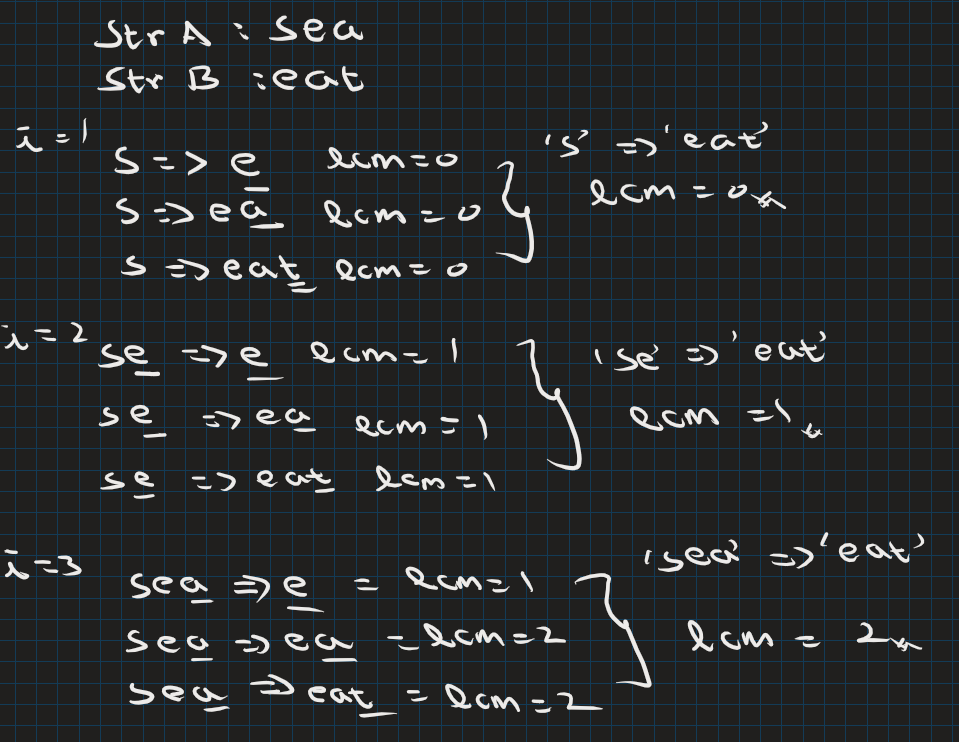 Str A : sea
Str B : eat
i = 1
s => e lcm = 0
s => ea lcm = 0
s => eat lcm = 0
's' => 'eat'
lcm = 0
i = 2
se => e lcm = 1
se => ea lcm = 1
se => eat lcm = 1
'se' => 'eat'
lcm = 1
i = 3
sea => e = lcm = 1
sea => ea = lcm = 2
sea => eat = lcm = 2
'sea' => 'eat'
lcm = 2